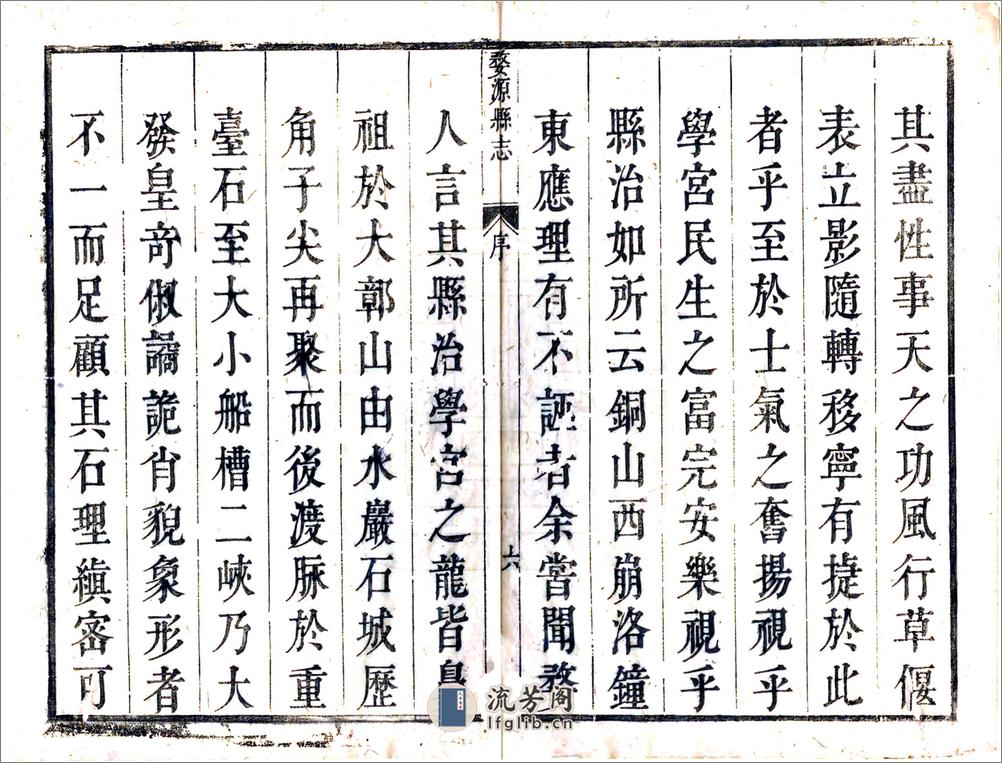 其盡性事天之功風行草偃
表立影隨轉移寧有捷於此
者乎至於士氣之奮揚視乎
學宮民生之富完安樂視乎
縣治如所云銅山西崩洛鐘
東應理有不誣者余嘗聞婺
婺源縣志
序
六
人言其縣治學宮之龍皆
祖於大鄣山由水巖石城歷
角子尖再聚而後渡脈於重
臺石至大小船槽二峽乃大
發皇奇俶譎詭肖貌象形者
不一而足顧其石理縝密可
流芳阁
lfglib.cn